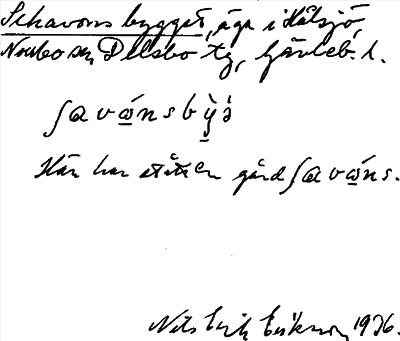 Schavons bygget, äga i Hålsjö,
Norrbo sn, Delsbo tg, Gävleb. l.
ʃavώnsbỳǵə̀
Här har stått en gård ʃavώns.
Nils Erik Eriksson 1926.